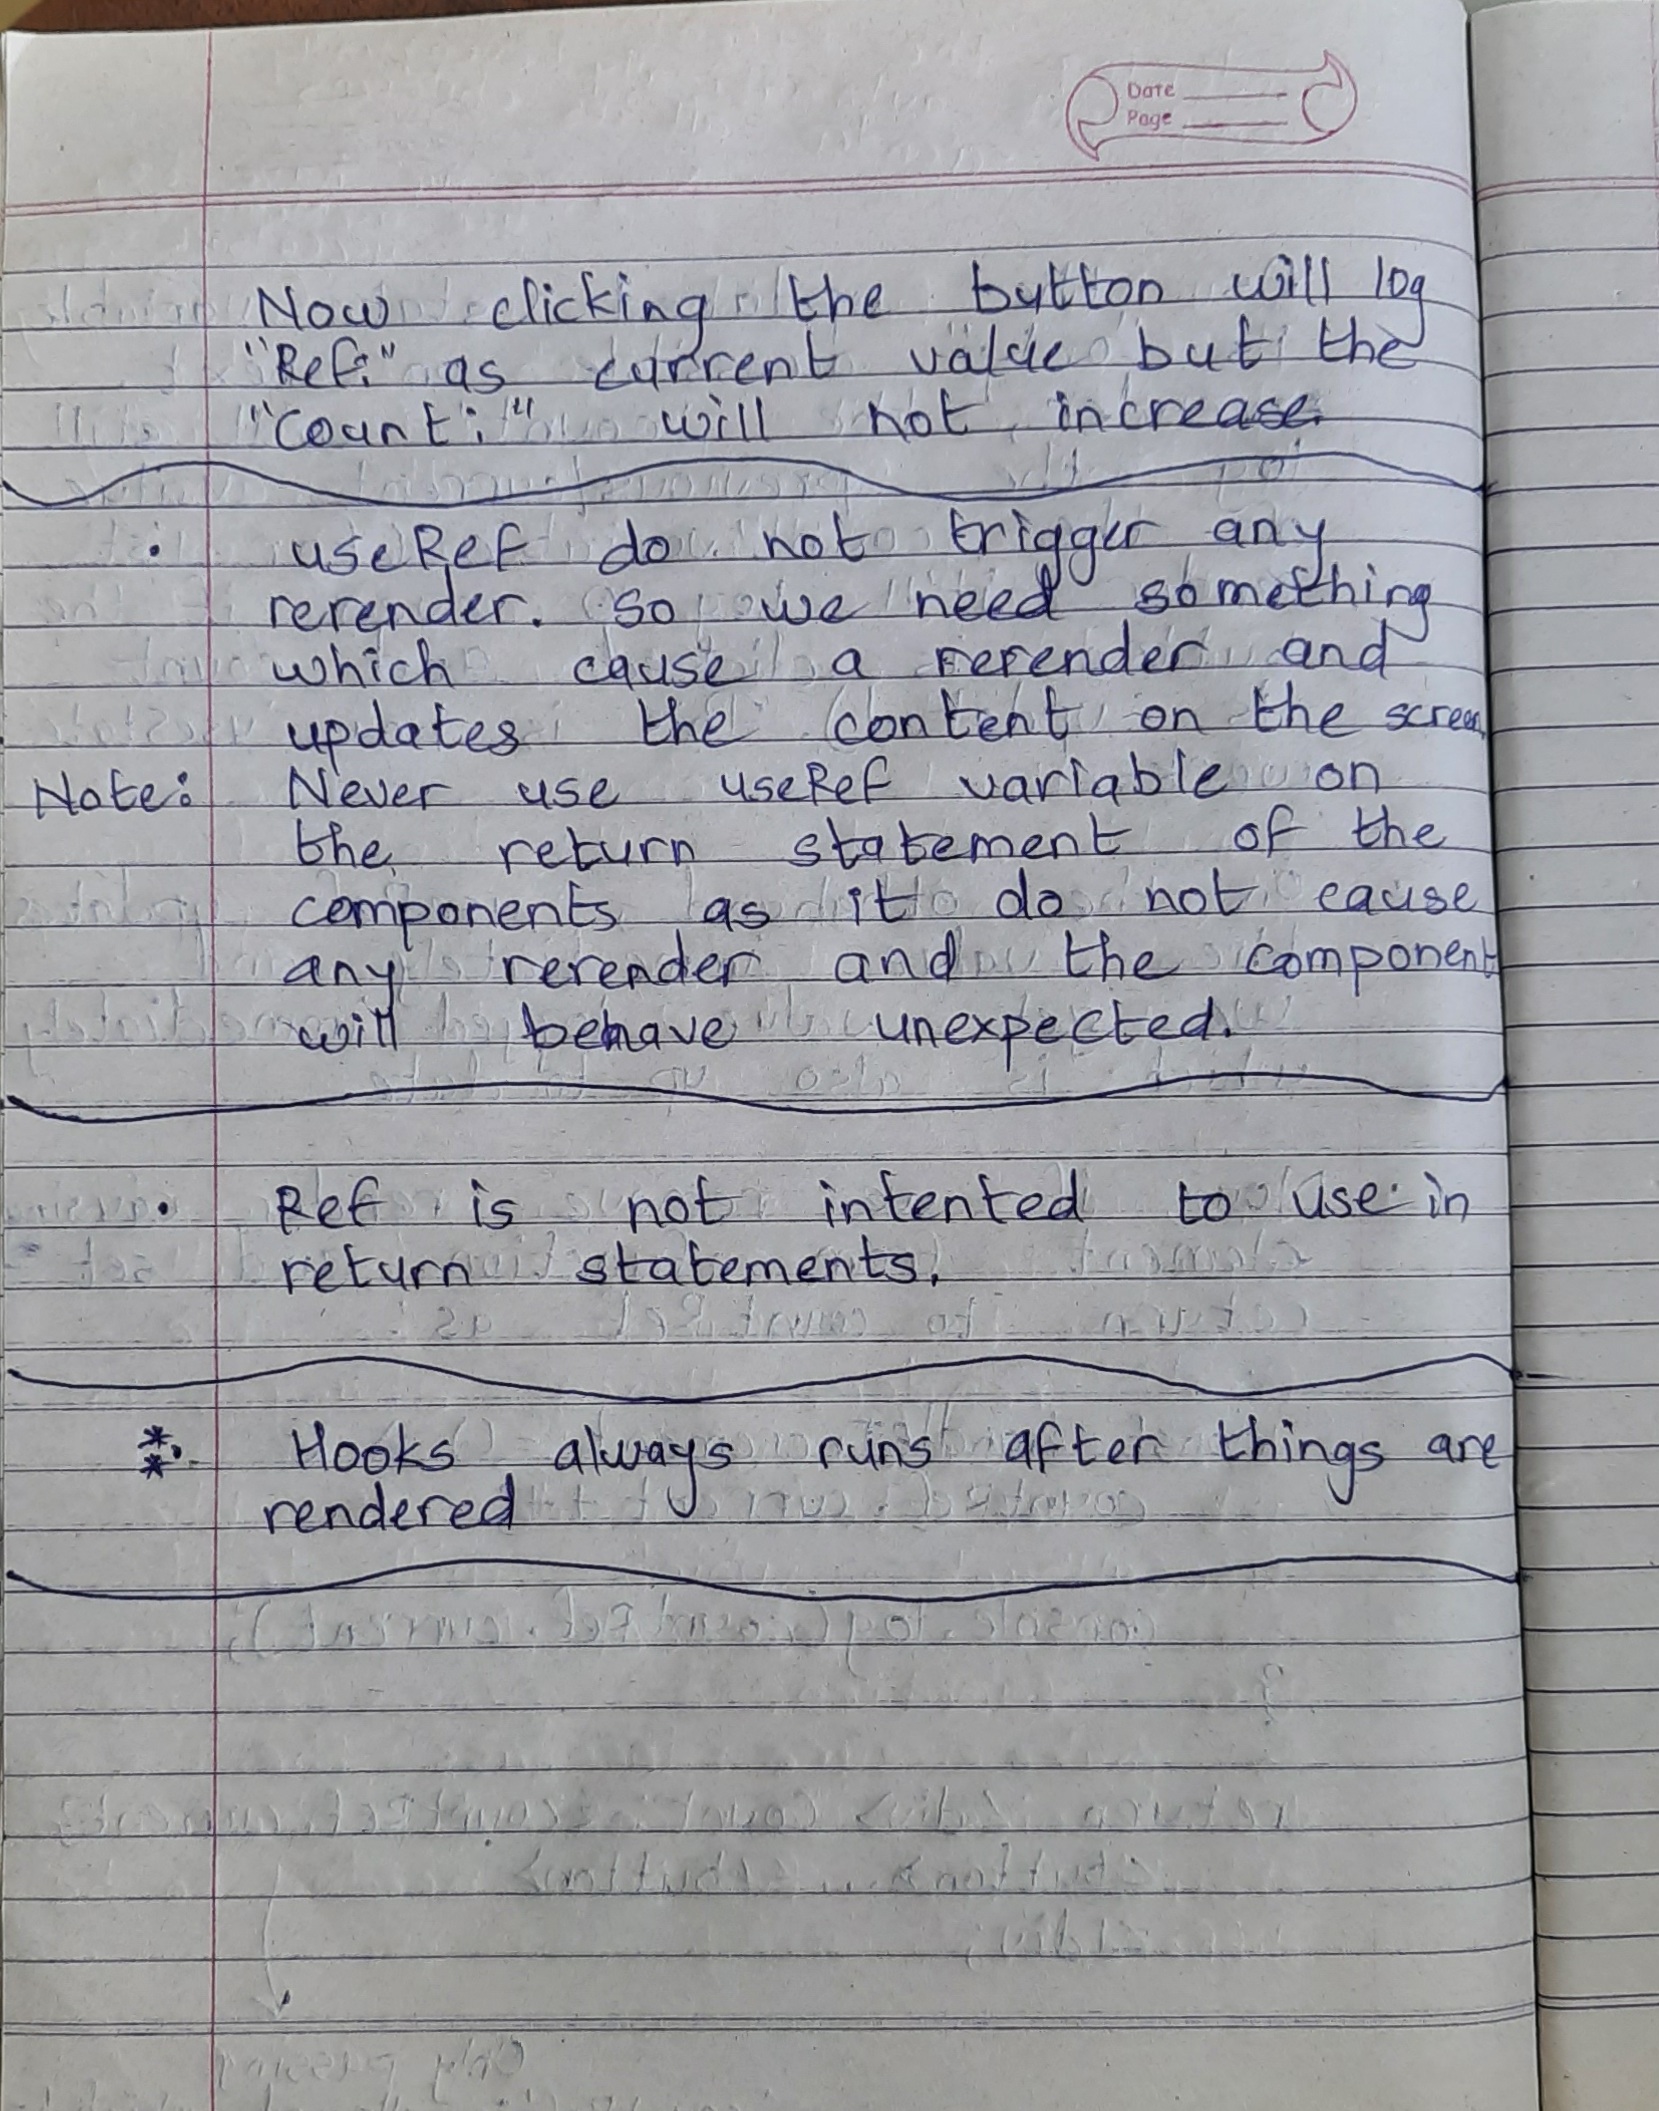 Date
Page
Now clicking the button will log
"Ref:" as current value but the
"Count:" will not increase.
• useRef do not trigger any
rerender. So we need something
which cause a rerender and
updates the content on the screen.
Note: Never use useRef variable on
the return statement of the
components as it do not cause
any rerender and the component
will behave unexpected.
• Ref is not intented to use in
return statements.
** Hooks always runs after things are
rendered